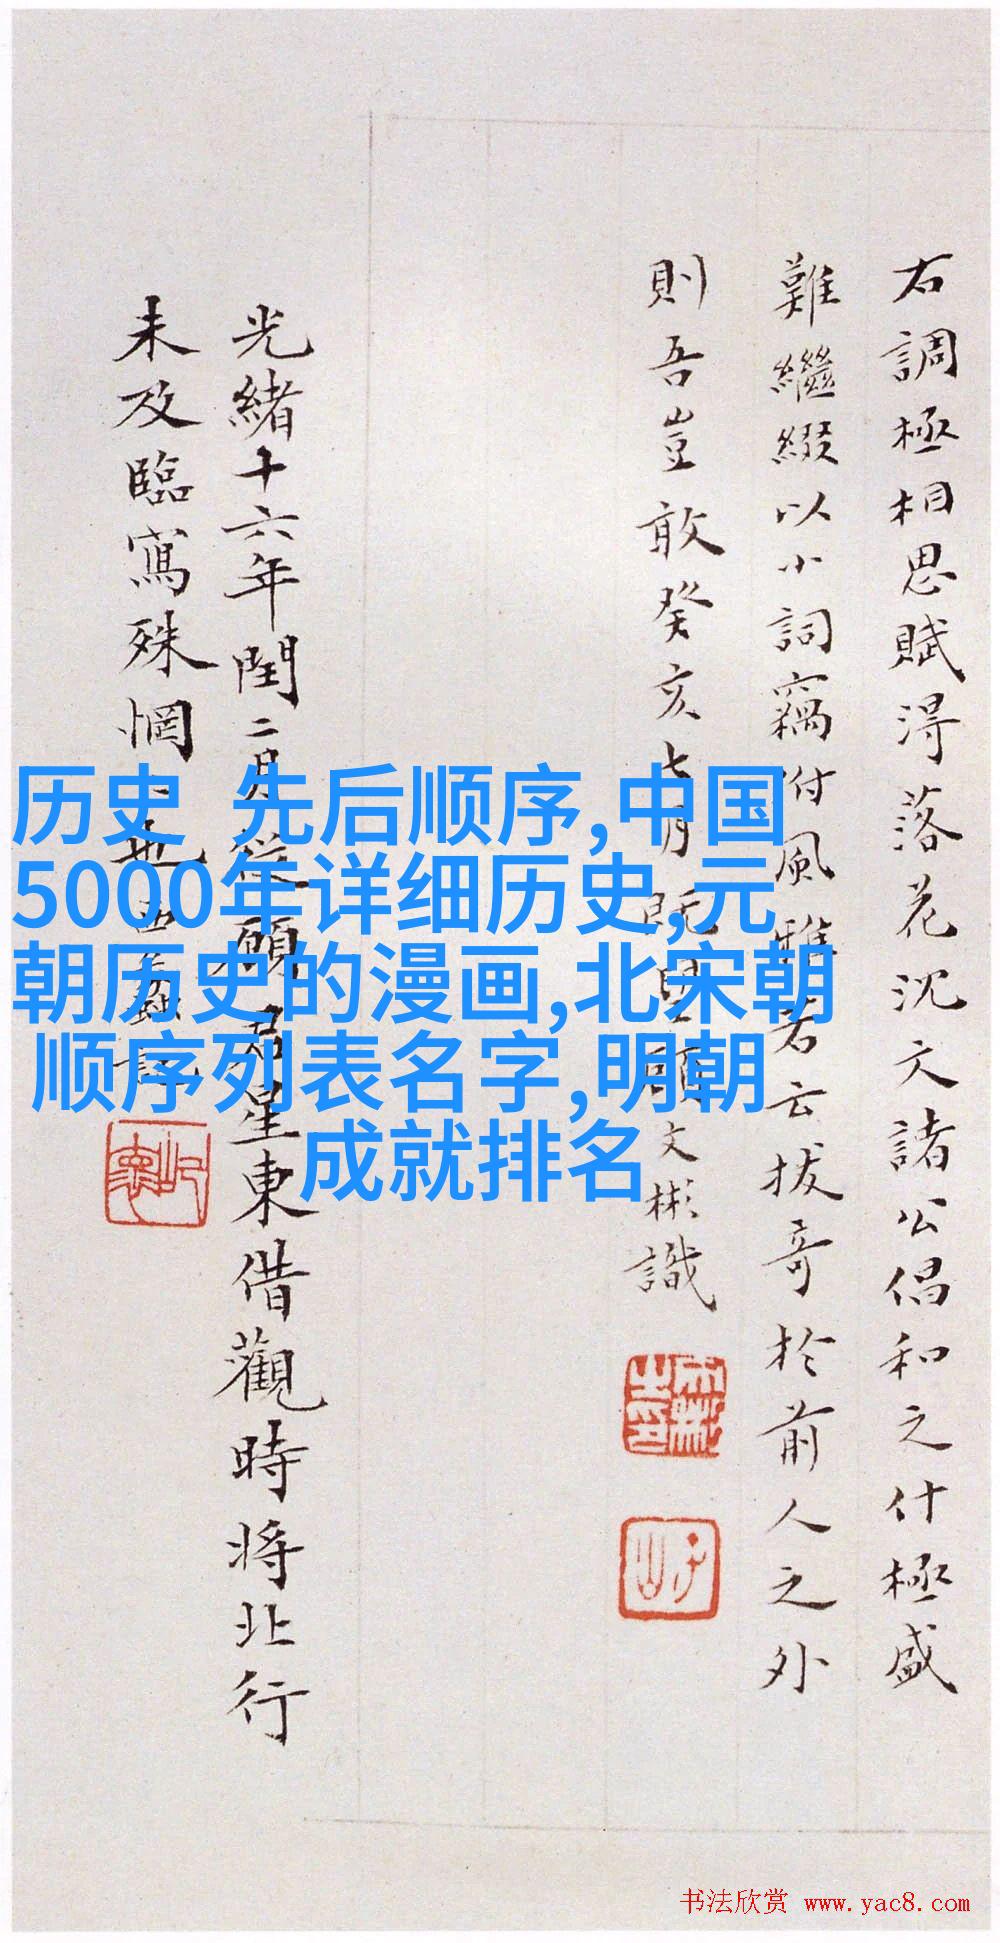 右調極相思賦得落花沉文諸公倡和之什極盛
難繼綴以小詞竊附風雅若云拔奇於前人之外
則吾豈敢癸亥七月既望頭文彬識
光緒十六年閏二月從顧君星東借觀時將北行
未及臨寫殊惘也西蠡記
历史 先后顺序,中国
5000年详细历史,元
朝历史的漫画,北宋朝
顺序列表名字,明朝
成就排名
书法欣赏 www.yac8.com